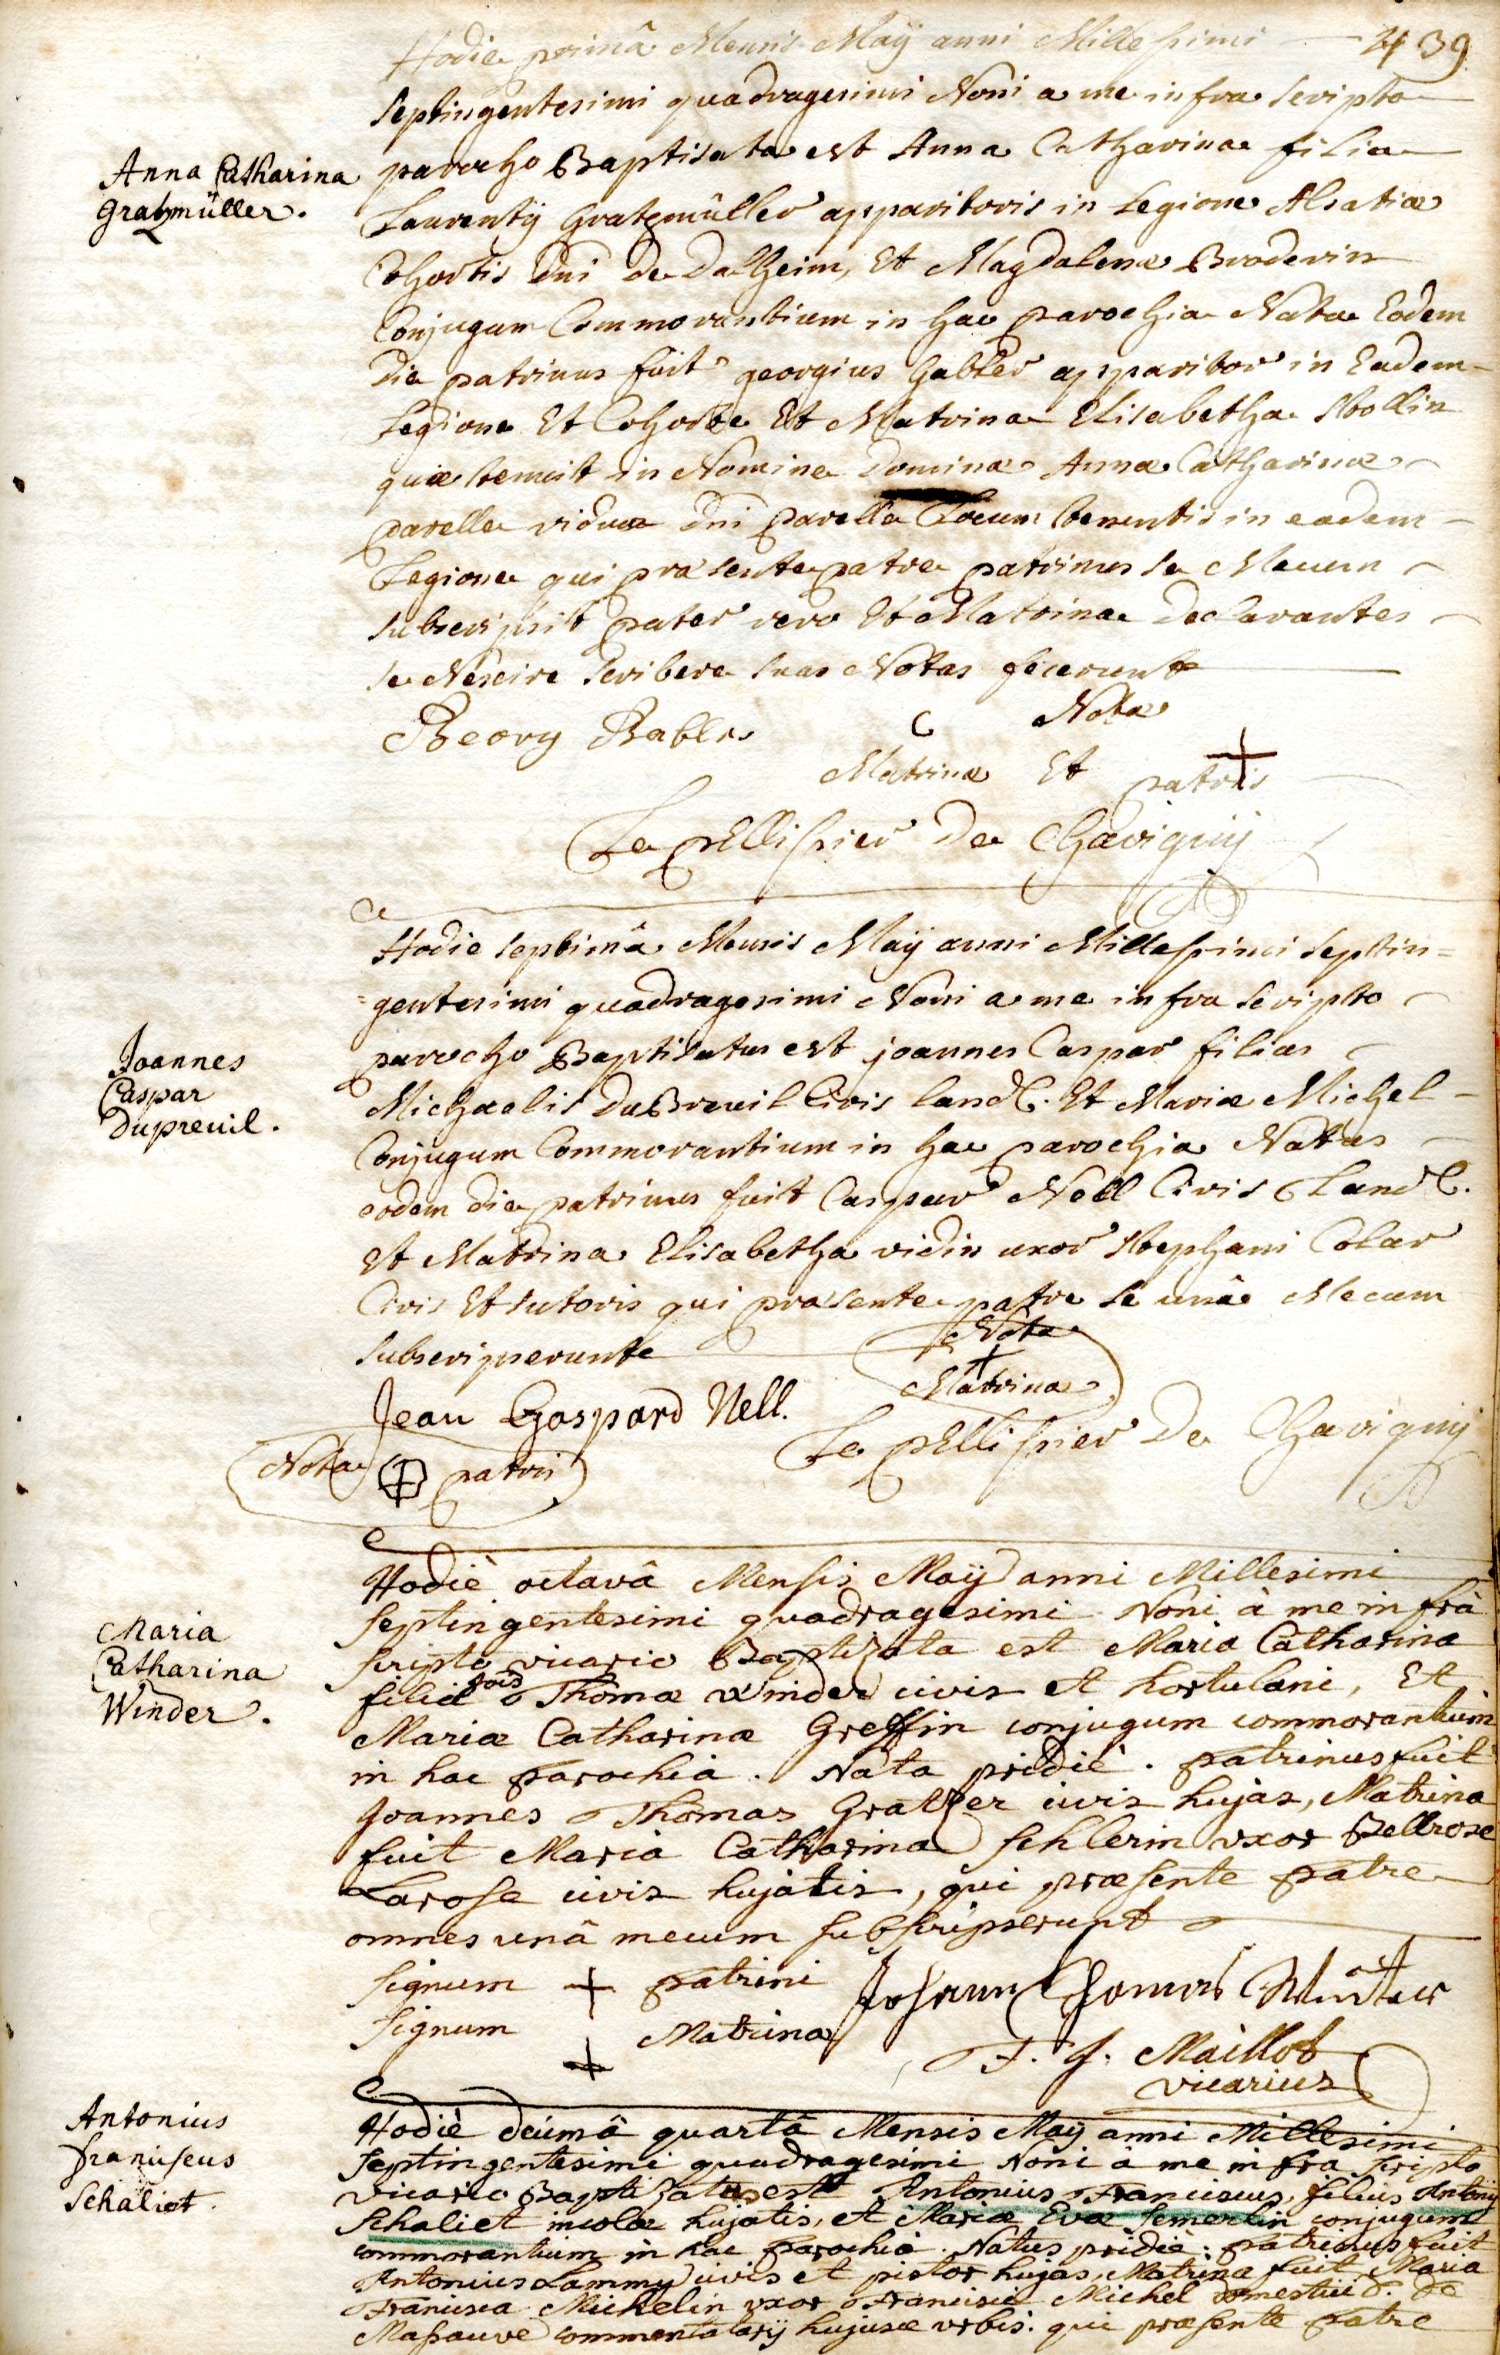 439
Hodie primâ Mensis Maÿ anni Millesimi
septingentesimi quadragesimi Noni a me infra scripto
Anna Catharina
Gratzmüller.
parocho Baptisata est Anna Catharina filia
Laurentÿ Gratzmüller apparitoris in Legione Alsatiæ
Cohortis Dni de Dalheim, Et Magdalenæ Broderin
Conjugum Commorantium in hac parochia Nata Eodem
Die patrinus fuit georgius gabler apparitor in Eadem
Legione Et Cohorte Et Matrina Elisabetha Stollin
quæ tenuit in Nomine Dominæ Annæ Catharinæ
parelle viduæ Dni parelle Locum tenentis in eadem
Legione qui præsente patre patrinus se Mecum
subscripsit pater vero Et Matrina Declarantes
se Nescire scribere suas Notas fecerunt
Georg Gabler
Nota
Matrinæ Et patris
Le pellissier De Chavignÿ
Hodie septimâ Mensis Maÿ anni Millesimi septin=
=gentesimi quadragesimi Noni a me infra scripto
Joannes
Caspar
Dupreuil.
parocho Baptisatus est joannes Caspar filius
Michaelis DuBreuil Civis land. Et Mariæ Michel
Conjugum Commorantium in hac parochia Natus
eodem die patrinus fuit Caspar Nell Civis Land.
et Matrina Elisabetha vidin uxor stephani Colar
Civis Et sutoris qui præsente patre se unâ Mecum
subscripserunt
Nota
+
Matrinæ
Jean Gaspard Nell.
Le pellissier De Chavignÿ
Nota patris
Hodiè octavâ Mensis Maÿ anni Millesimi
septingentesimi quadragesimi Noni à me infrà
Maria
Catharina
Winder.
scripto vicario Baptizata est Maria Catharina
filia Jois Thomæ Winder civis et hortulani, Et
Mariæ Catharinæ Greffin conjugum commorantium
in hac parochiâ. Nata pridiè. patrinus fuit
Joannes Thomas Gratzer civis hujas, Matrina
fuit Maria Catharina sehlerin uxor Bellrose
Larose civis hujatis, qui præsente patre
omnes unâ mecum subscripserunt
Signum + patrini
Johann Thomas Winter
Signum + Matrinæ
F. J. Maillot
vicarius
Antonius
franciscus
Schaliet.
Hodiè decimâ quartâ Mensis Maÿ anni Millesimi
septingentesimi quadragesimi Noni à me infra scripto
vicario Baptizatus est Antonius Franciscus, filius Antonÿ
Schaliet incolæ hujatis, et Mariæ Evæ Semerlin conjugum
commorantium in hac parochia. Natus pridiè. patrinus fuit
Antonius Lammy civis et pistor hujas, Matrina fuit Maria
Francisca Michelin uxor Francisci Michel domestici d. de
Massauve commentatarÿ hujusce urbis. qui præsente patre